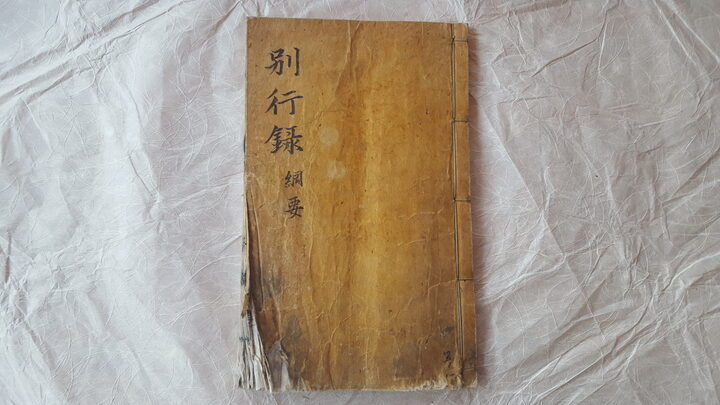 別行録
綱要